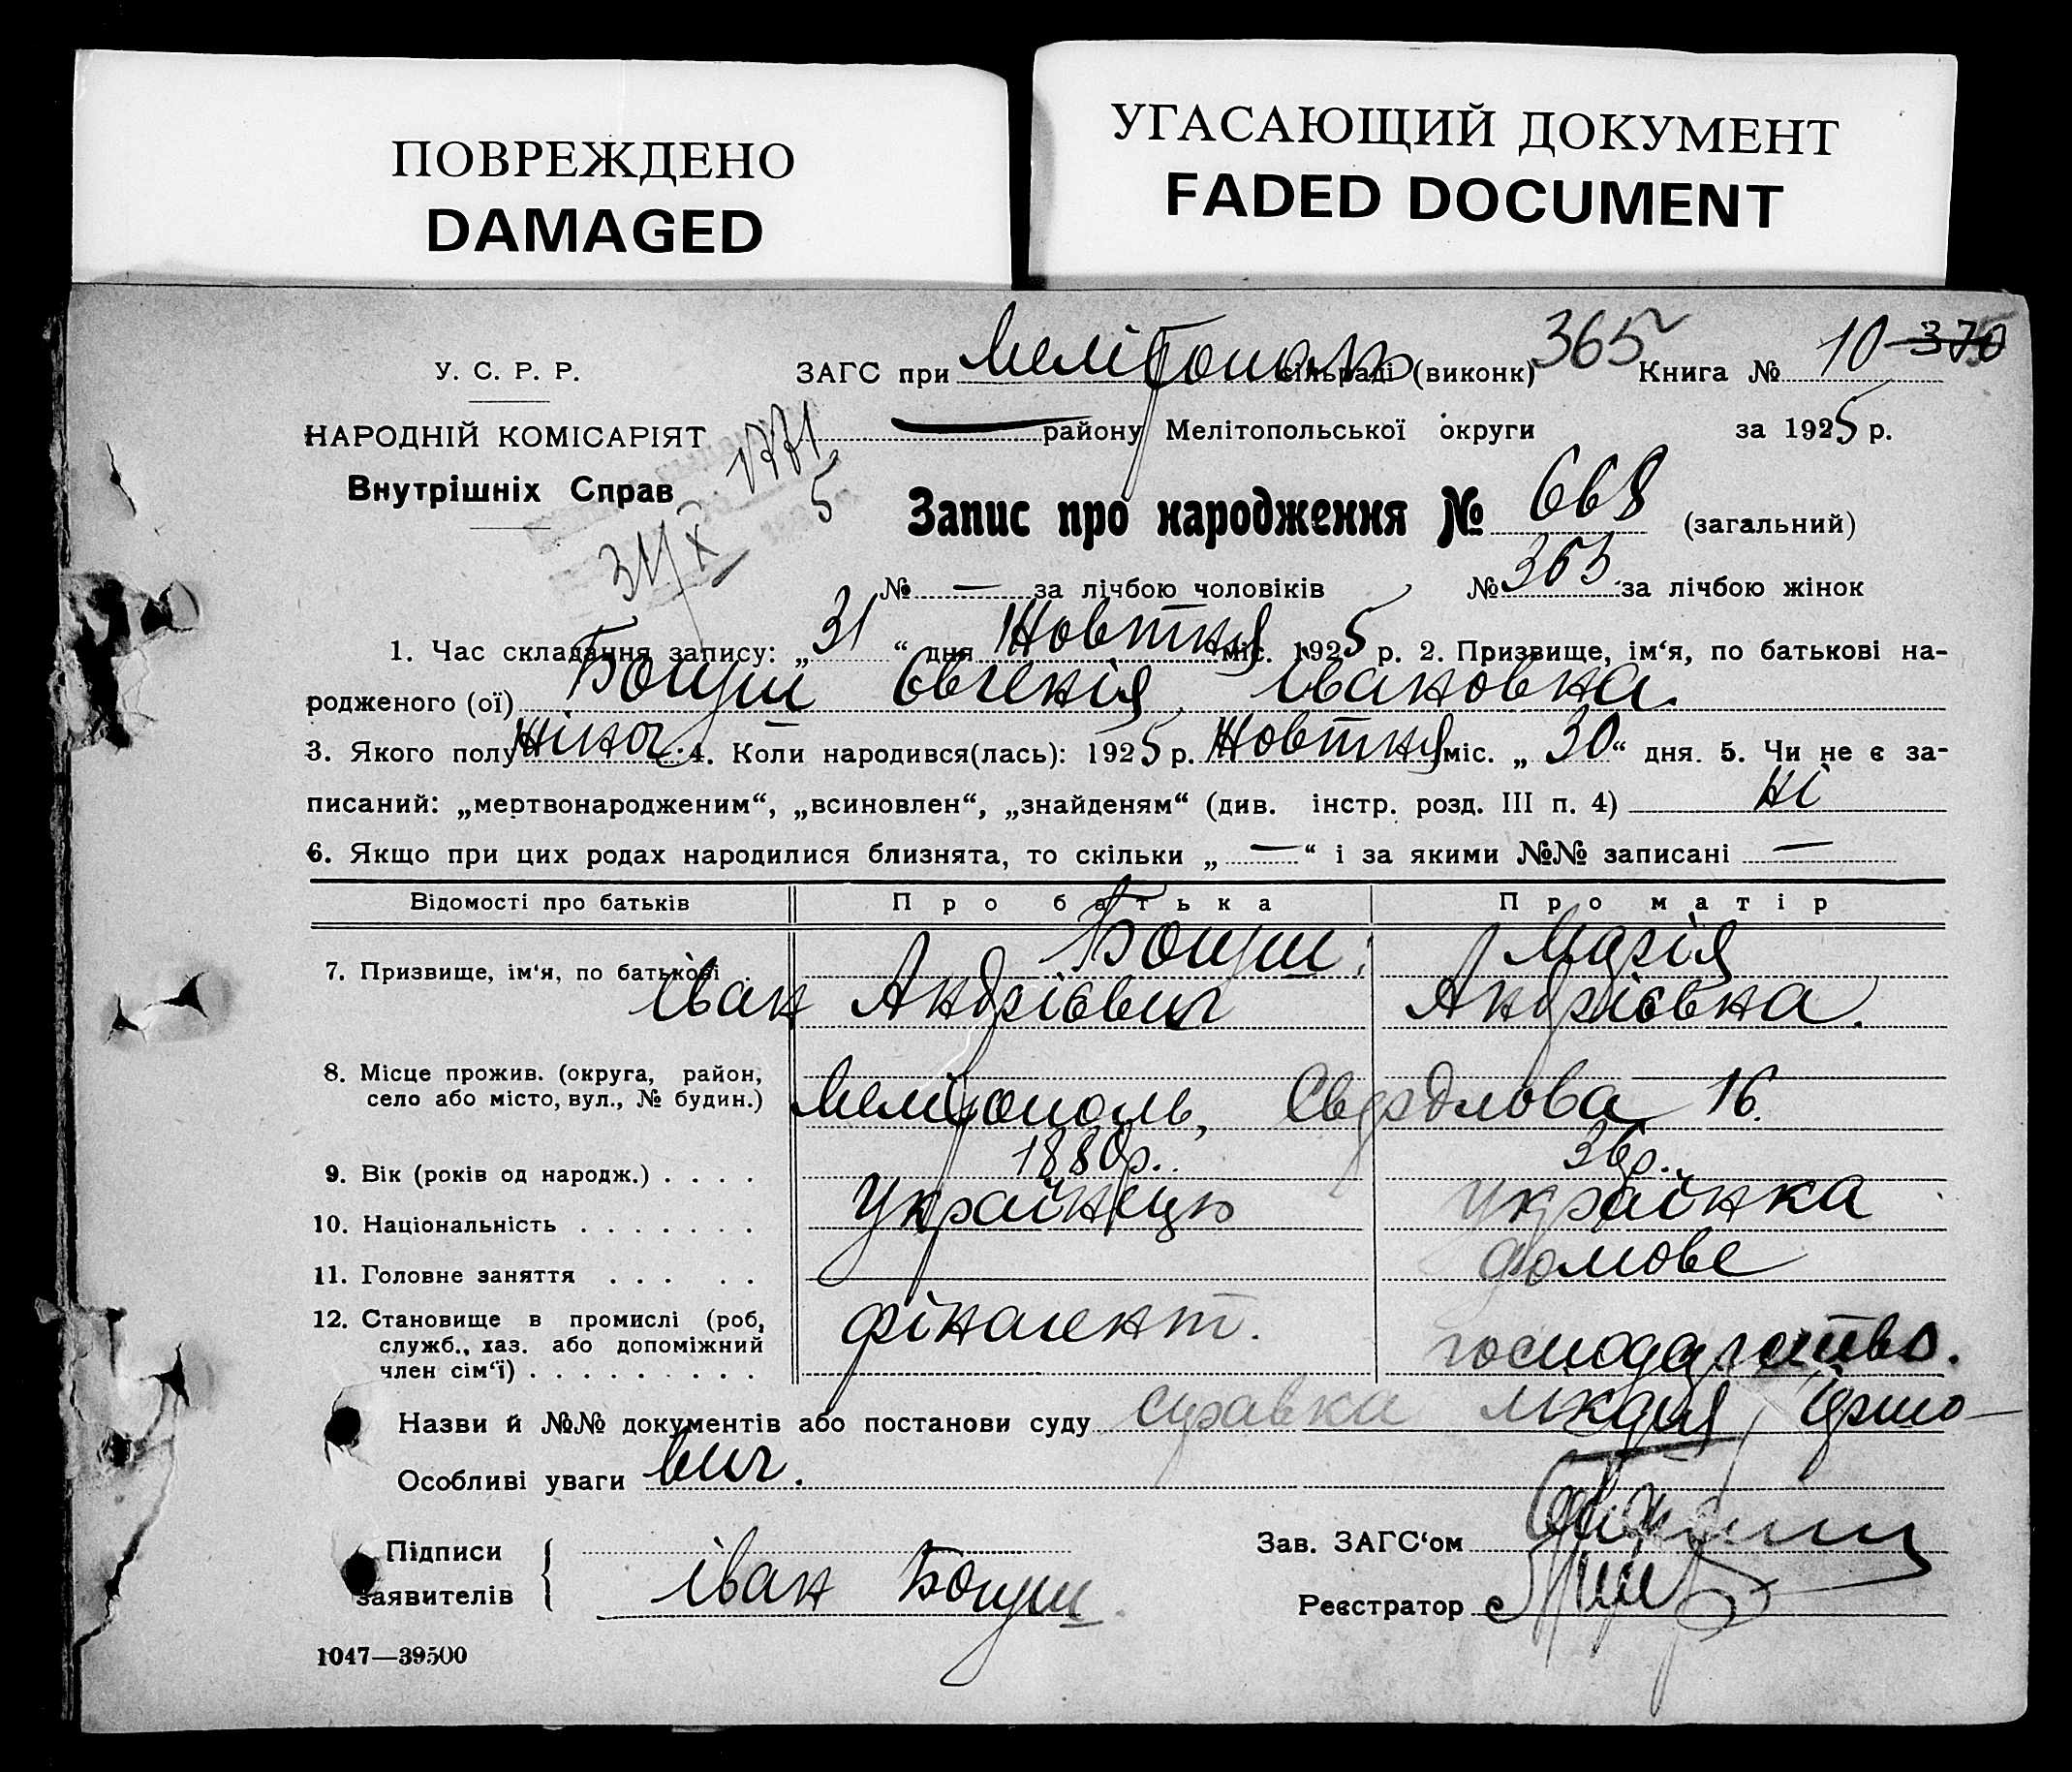 ПОВРЕЖДЕНО
DAMAGED
УГАСАЮЩИЙ ДОКУМЕНТ
FADED DOCUMENT
У. С. Р. Р.
НАРОДНІЙ КОМІСАРІЯТ
Внутрішніх Справ
ЗАГС при Мелітополь сільраді (виконк) 365 Книга № 10 370
— району Мелітопольської округи за 1925 р.
1771
5
31/X
Запис про народження № 668 (загальний)
№ — за лічбою чоловіків № 365 за лічбою жінок
1. Час складання запису: „31“ дня Жовтня міс. 1925 р. 2. Призвище, ім‘я, по батькові на-
родженого (ої) Боцуш Євгенія Івановна.
3. Якого полу жіноч. 4. Коли народився(лась): 1925 р. Жовтня міс. „30“ дня. 5. Чи не є за-
писаний: „мертвонародженим“, „всиновлен“, „знайденям“ (див. інстр. розд. III п. 4) ні
6. Якщо при цих родах народилися близнята, то скільки „—“ і за якими №№ записані —
Відомості про батьків Про батька Про матір
7. Призвище, ім‘я, по батькові Боцуш Марія
Іван Андрієвич Андрієвна.
8. Місце прожив. (округа, район,
село або місто, вул., № будин.) Мелітополь, Свердлова 16.
9. Вік (років од народж.) . . . . 1880р. 36р.
10. Національність . . . . . . . Українець Українка
11. Головне заняття . . . . . домове
12. Становище в промислі (роб,
служб., хаз. або допоміжний
член сім‘ї) . . . . . . . . . фінагент. господарство.
Назви й №№ документів або постанови суду справка лікаря
Особливі уваги вич.
Підписи
заявителів
Іван Боцуш
Зав. ЗАГС‘ом
Реєстратор
1047—39500